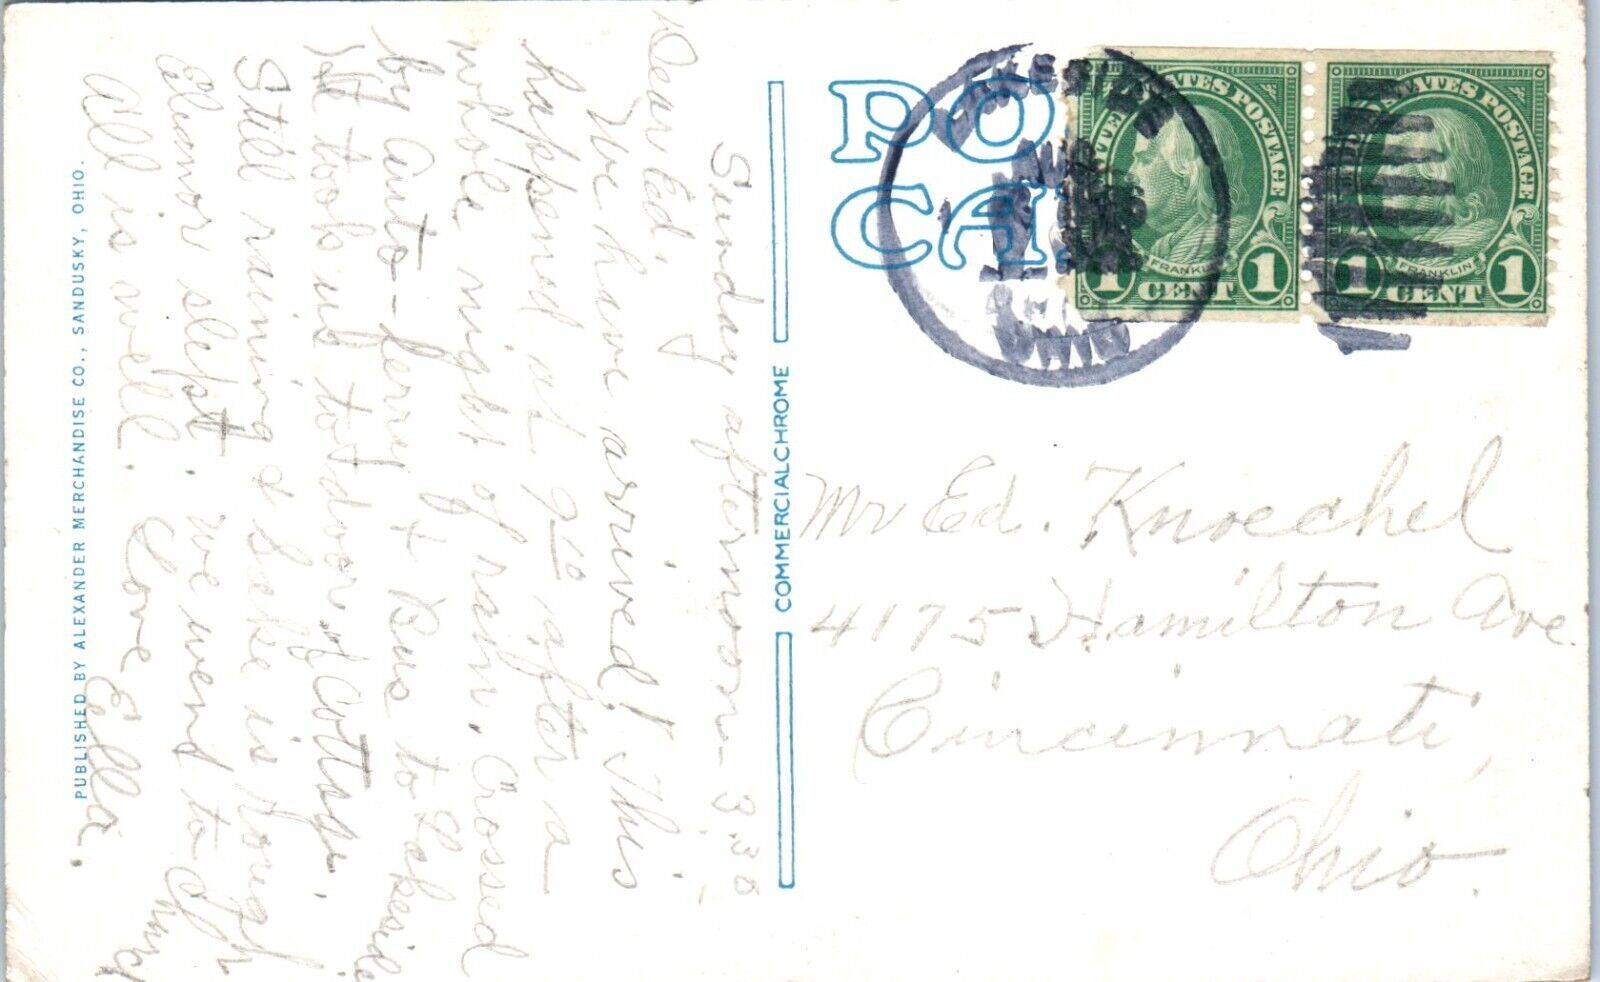 Sunday afternoon - 3.30
Dear Ed,
We have arrived! This
happened at 9 10 after a
whole night of rain. Crossed
by auto-ferry & Bus to Lakeside
It took us to door of Cottage.
Still raining & Lake is rough
Elinor slept. We went to Church
All is well. Love Ella.
PUBLISHED BY ALEXANDER MERCHANDISE CO., SANDUSKY, OHIO.
COMMERCIALCHROME
PO
CA
LAKESIDE
AUG
OHIO
UNITED STATES POSTAGE
FRANKLIN
1 CENT 1
STATES POSTAGE
FRANKLIN
1 CENT 1
Mr Ed. Knoechel
4175 Hamilton Ave
Cincinnati,
Ohio.